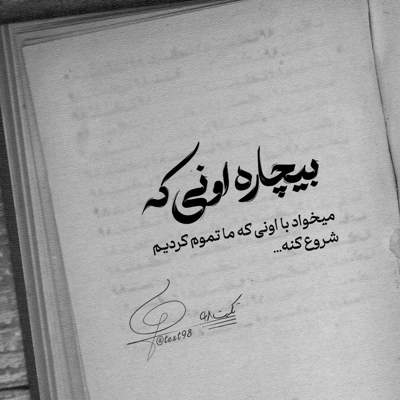 بیچاره اونی که
میخواد با اونی که ما تموم کردیم
شروع کنه...
تکست ۹۸
@text98